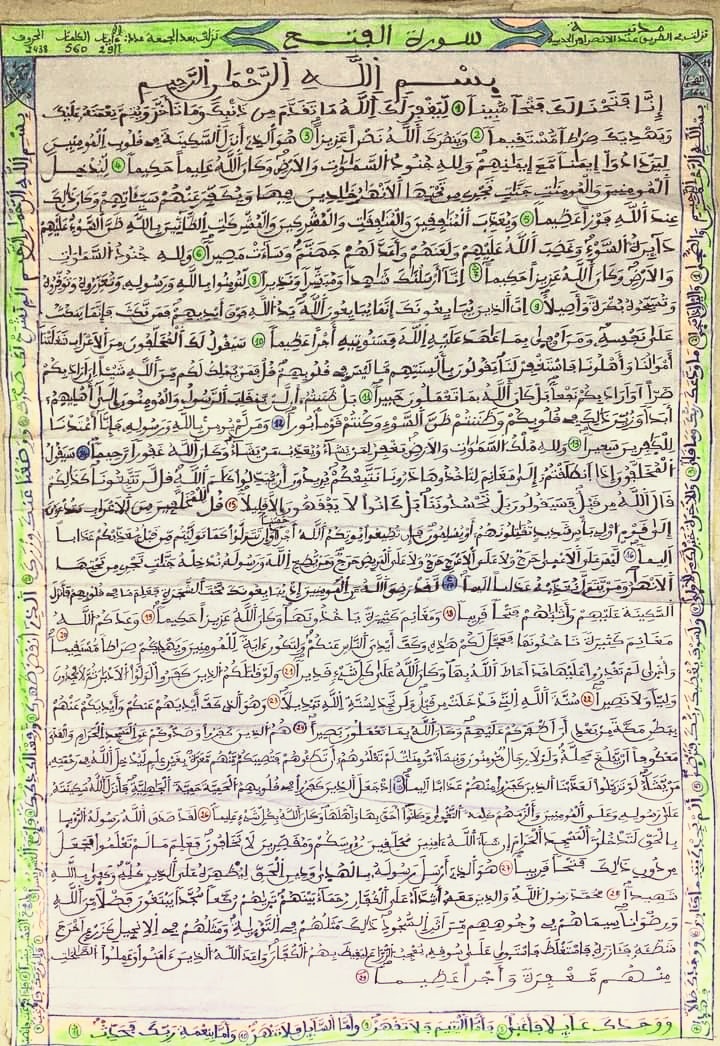 نزلت في الطريق عند الانصراف من الحديبية
مدنية
سورة الفتح
نزلت بعد الجمعة
29 الكلمات 560 الحروف 2438
بسم الله الرحمن الرحيم
إنا فتحنا لك فتحا مبينا 1 ليغفر لك الله ما تقدم من ذنبك وما تأخر ويتم نعمته عليك
ويهديك صراطا مستقيما 2 وينصرك الله نصرا عزيزا 3 هو الذي أنزل السكينة في قلوب المومنين
ليزدادوا إيمنا مع إيمنهم ولله جنود السموات والارض وكان الله عليما حكيما 4 ليدخل
المومنين والمومنات جنات تجري من تحتها الانهار خلدين فيها ويكفر عنهم سيئاتهم وكان ذلك
عند الله فوزا عظيما 5 ويعذب المنفقين والمنفقات والمشركين والمشركات الظانين بالله ظن السوء عليهم
دايرة السوء وغضب الله عليهم ولعنهم وأعد لهم جهنم وساءت مصيرا 6 ولله جنود السماوات
والارض وكان الله عزيزا حكيما 7 إنا أرسلنك شهدا ومبشرا ونذيرا 8 لتومنوا بالله ورسوله وتعزروه وتوقروه
وتسبحوه بكرة وأصيلا 9 إن الذين يبايعونك إنما يبايعون الله يد الله فوق أيديهم فمن نكث فإنما ينكث
على نفسه ومن أوفى بما عهد عليه الله فسنوتيه أجرا عظيما 10 سيقول لك المخلفون من الاعراب شغلتنا
أموالنا وأهلونا فاستغفر لنا يقولون بألسنتهم ما ليس في قلوبهم قل فمن يملك لكم من الله شيئا إن اراد بكم
ضرا او اراد بكم نفعا بل كان الله بما تعملون خبيرا 11 بل ظننتم أن لن ينقلب الرسول والمومنون إلى أهليهم
أبدا وزين ذلك في قلوبكم وظننتم ظن السوء وكنتم قوما بورا 12 ومن لم يومن بالله ورسوله فإنا أعتدنا
للكفرين سعيرا 13 ولله ملك السموات والارض يغفر لمن يشاء ويعذب من يشاء وكان الله غفورا رحيما 14 سيقول
المخلفون إذا انطلقتم إلى مغانم لتاخذوها ذرونا نتبعكم يريدون أن يبدلوا كلم الله قل لن تتبعونا كذلكم
قال الله من قبل فسيقولون بل تحسدوننا بل كانوا لا يفقهون إلا قليلا 15 قل للمخلفين من الاعراب ستدعون
إلى قوم اولي بأس شديد تقتلونهم أو يسلمون فإن تطيعوا يوتكم الله أجرا حسنا وإن تتولوا كما توليتم من قبل يعذبكم عذابا
اليما 16 ليس على الاعمى حرج ولا على الاعرج حرج ولا على المريض حرج ومن يطع الله ورسوله ندخله جنت تجري من تحتها
الانهر ومن يتول نعذبه عذابا اليما 17 لقد رضي الله عن المومنين إذ يبايعونك تحت الشجرة فعلم ما في قلوبهم فأنزل
السكينة عليهم وأثبهم فتحا قريبا 18 ومغانم كثيرة ياخذونها وكان الله عزيزا حكيما 19 وعدكم الله
مغانم كثيرة تاخذونها فعجل لكم هذه وكف أيدي الناس عنكم ولتكون ءاية للمومنين ويهديكم صراطا مستقيما 20
واخرى لم تقدروا عليها قد أحاط الله بها وكان الله على كل شيء قديرا 21 ولو قتلكم الذين كفروا لولوا الادبار ثم لا يجدون
وليا ولا نصيرا 22 سنة الله التي قد خلت من قبل ولن تجد لسنة الله تبديلا 23 وهو الذي كف أيديهم عنكم وأيديكم عنهم
ببطن مكة من بعد أن أظفركم عليهم وكان الله بما تعملون بصيرا 24 هم الذين كفروا وصدوكم عن المسجد الحرام والهدي
معكوفا ان يبلغ محله ولولا رجال مومنون ونساء مومنات لم تعلموهم أن تطئوهم فتصيبكم منهم معرة بغير علم ليدخل الله في رحمته
من يشاء لو تزيلوا لعذبنا الذين كفروا منهم عذابا اليما 25 إذ جعل الذين كفروا في قلوبهم الحمية حمية الجاهلية فأنزل الله سكينته
على رسوله وعلى المومنين وألزمهم كلمة التقوى وكانوا أحق بها وأهلها وكان الله بكل شيء عليما 26 لقد صدق الله رسوله الرؤيا
بالحق لتدخلن المسجد الحرام إن شاء الله ءامنين محلقين رءوسكم ومقصرين لا تخافون فعلم ما لم تعلموا فجعل
من دون ذلك فتحا قريبا 27 هو الذي أرسل رسوله بالهدى ودين الحق ليظهره على الدين كله وكفى بالله
شهيدا 28 محمد رسول الله والذين معه أشداء على الكفار رحماء بينهم تريهم ركعا سجدا يبتغون فضلا من الله
ورضوانا سيماهم في وجوههم من أثر السجود ذلك مثلهم في التورية ومثلهم في الانجيل كزرع اخرج
شطئه فئازره فاستغلظ فاستوى على سوقه يعجب الزراع ليغيظ بهم الكفار وعد الله الذين ءامنوا وعملوا الصلحت
منهم مغفرة وأجرا عظيما 29
بسم الله الرحمن الرحيم والضحى والليل إذا سجى ما ودعك ربك وما قلى وللاخرة خير لك من الاولى ولسوف يعطيك ربك فترضى ألم يجدك يتيما فئاوى ووجدك ضالا فهدى
ووجدك عايلا فأغنى فأما اليتيم فلا تقهر وأما السايل فلا تنهر وأما بنعمة ربك فحدث
بسم الله الرحمن الرحيم ألم نشرح لك صدرك ووضعنا عنك وزرك الذي أنقض ظهرك ورفعنا لك ذكرك فإن مع العسر يسرا